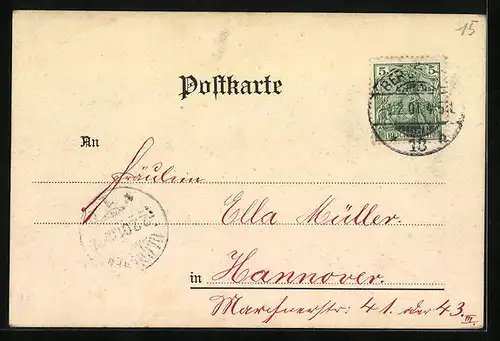 15
Postkarte
5
An
Fräulein
Ella Müller.
in Hannover.
Marschnerstr: 41. oder 43. III.